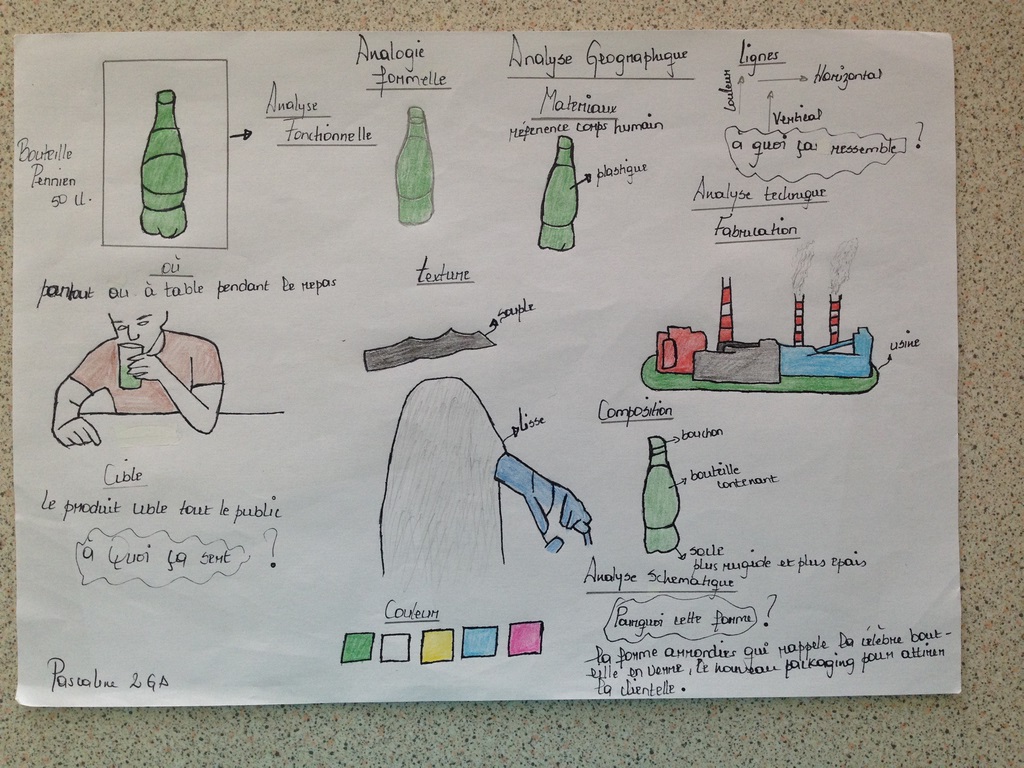 Bouteille
Perrier
50 cl.
Analyse
Fonctionnelle
Analogie
formelle
Analyse Geographyque
Materiaux
réference corps humain
plastique
Lignes
Horizontal
Couleur
Vertical
a quoi ça ressemble ?
Analyse technique
Fabrication
usine
où
partout ou à table pendant le repas
texture
souple
Lisse
Cible
Le produit cible tout le public
à Quoi ça sert ?
Composition
bouchon
bouteille
contenant
socle
plus rugide et plus epais
Analyse Schematique
Pourquoi cette forme ?
la forme arrondies qui rappele la célèbre bout-
eille en verre, le nouveau packaging pour attirer
la clientelle.
Couleur
Pascaline 2GA